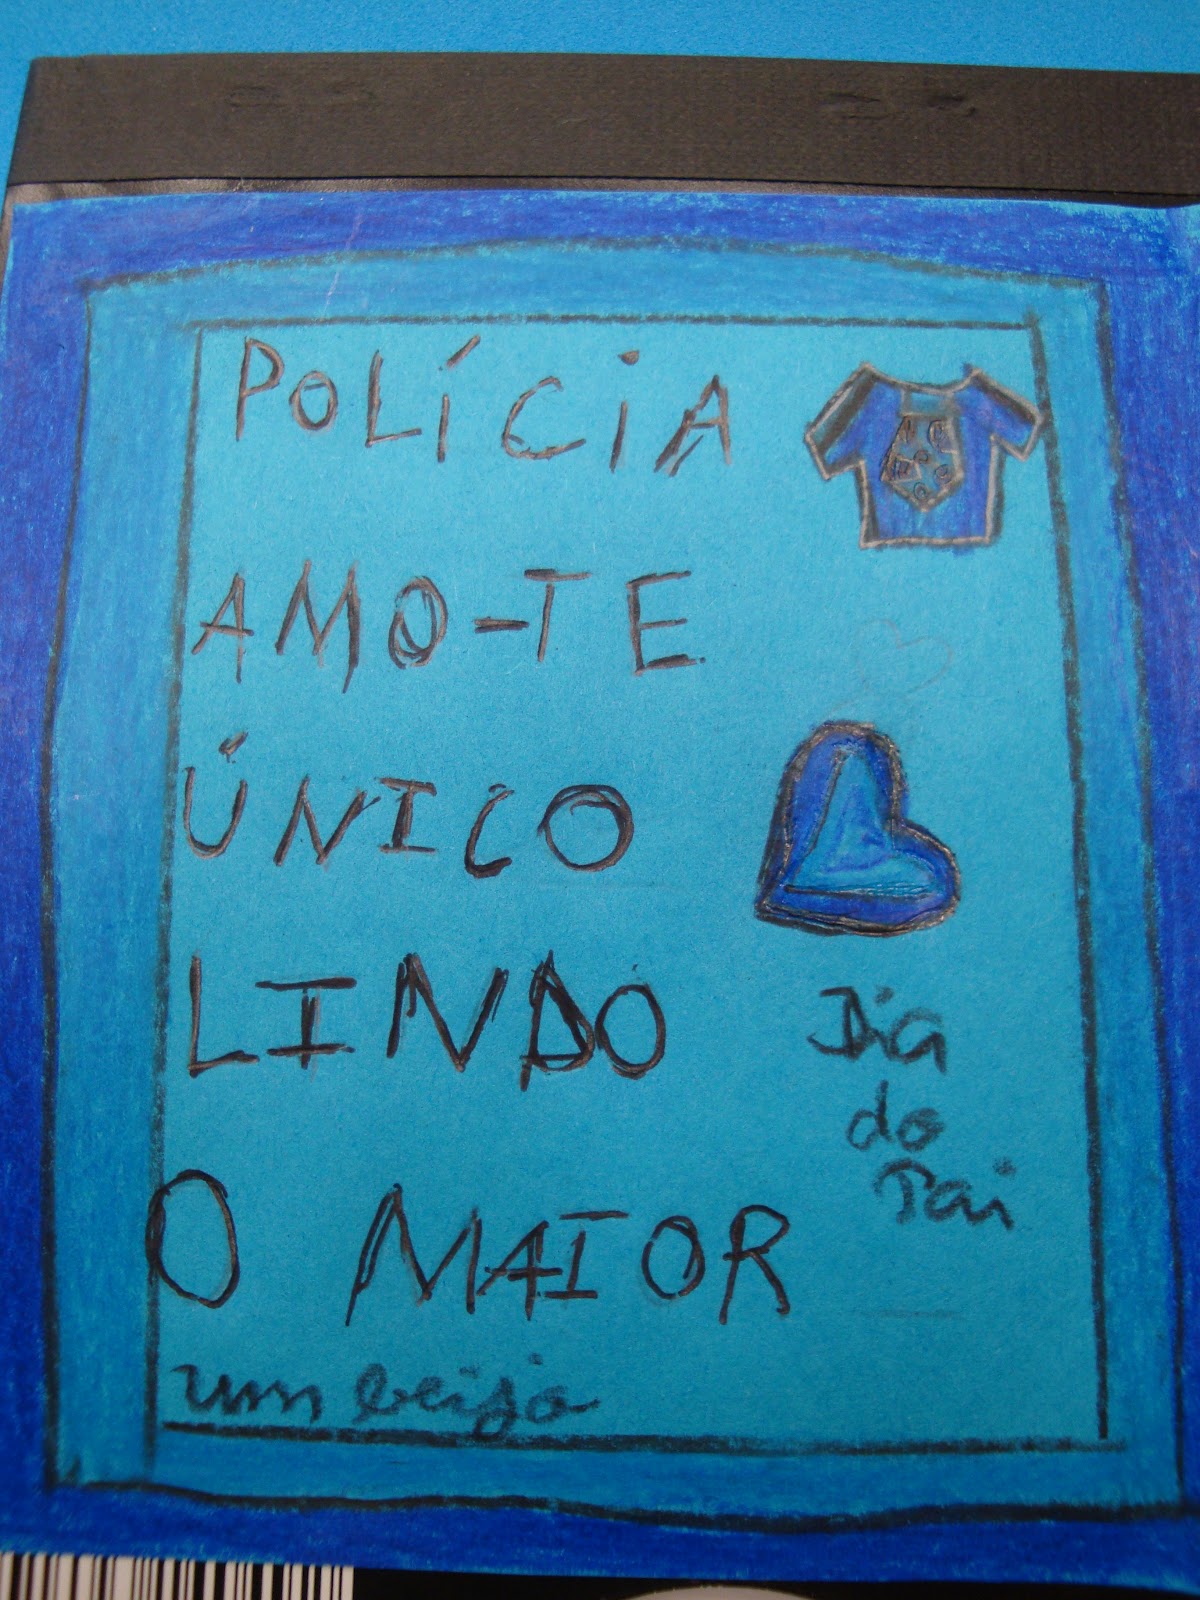 POLÍCIA
AMO-TE
ÚNICO
LINDO
O MAIOR
um beijo
Dia
do
Pai